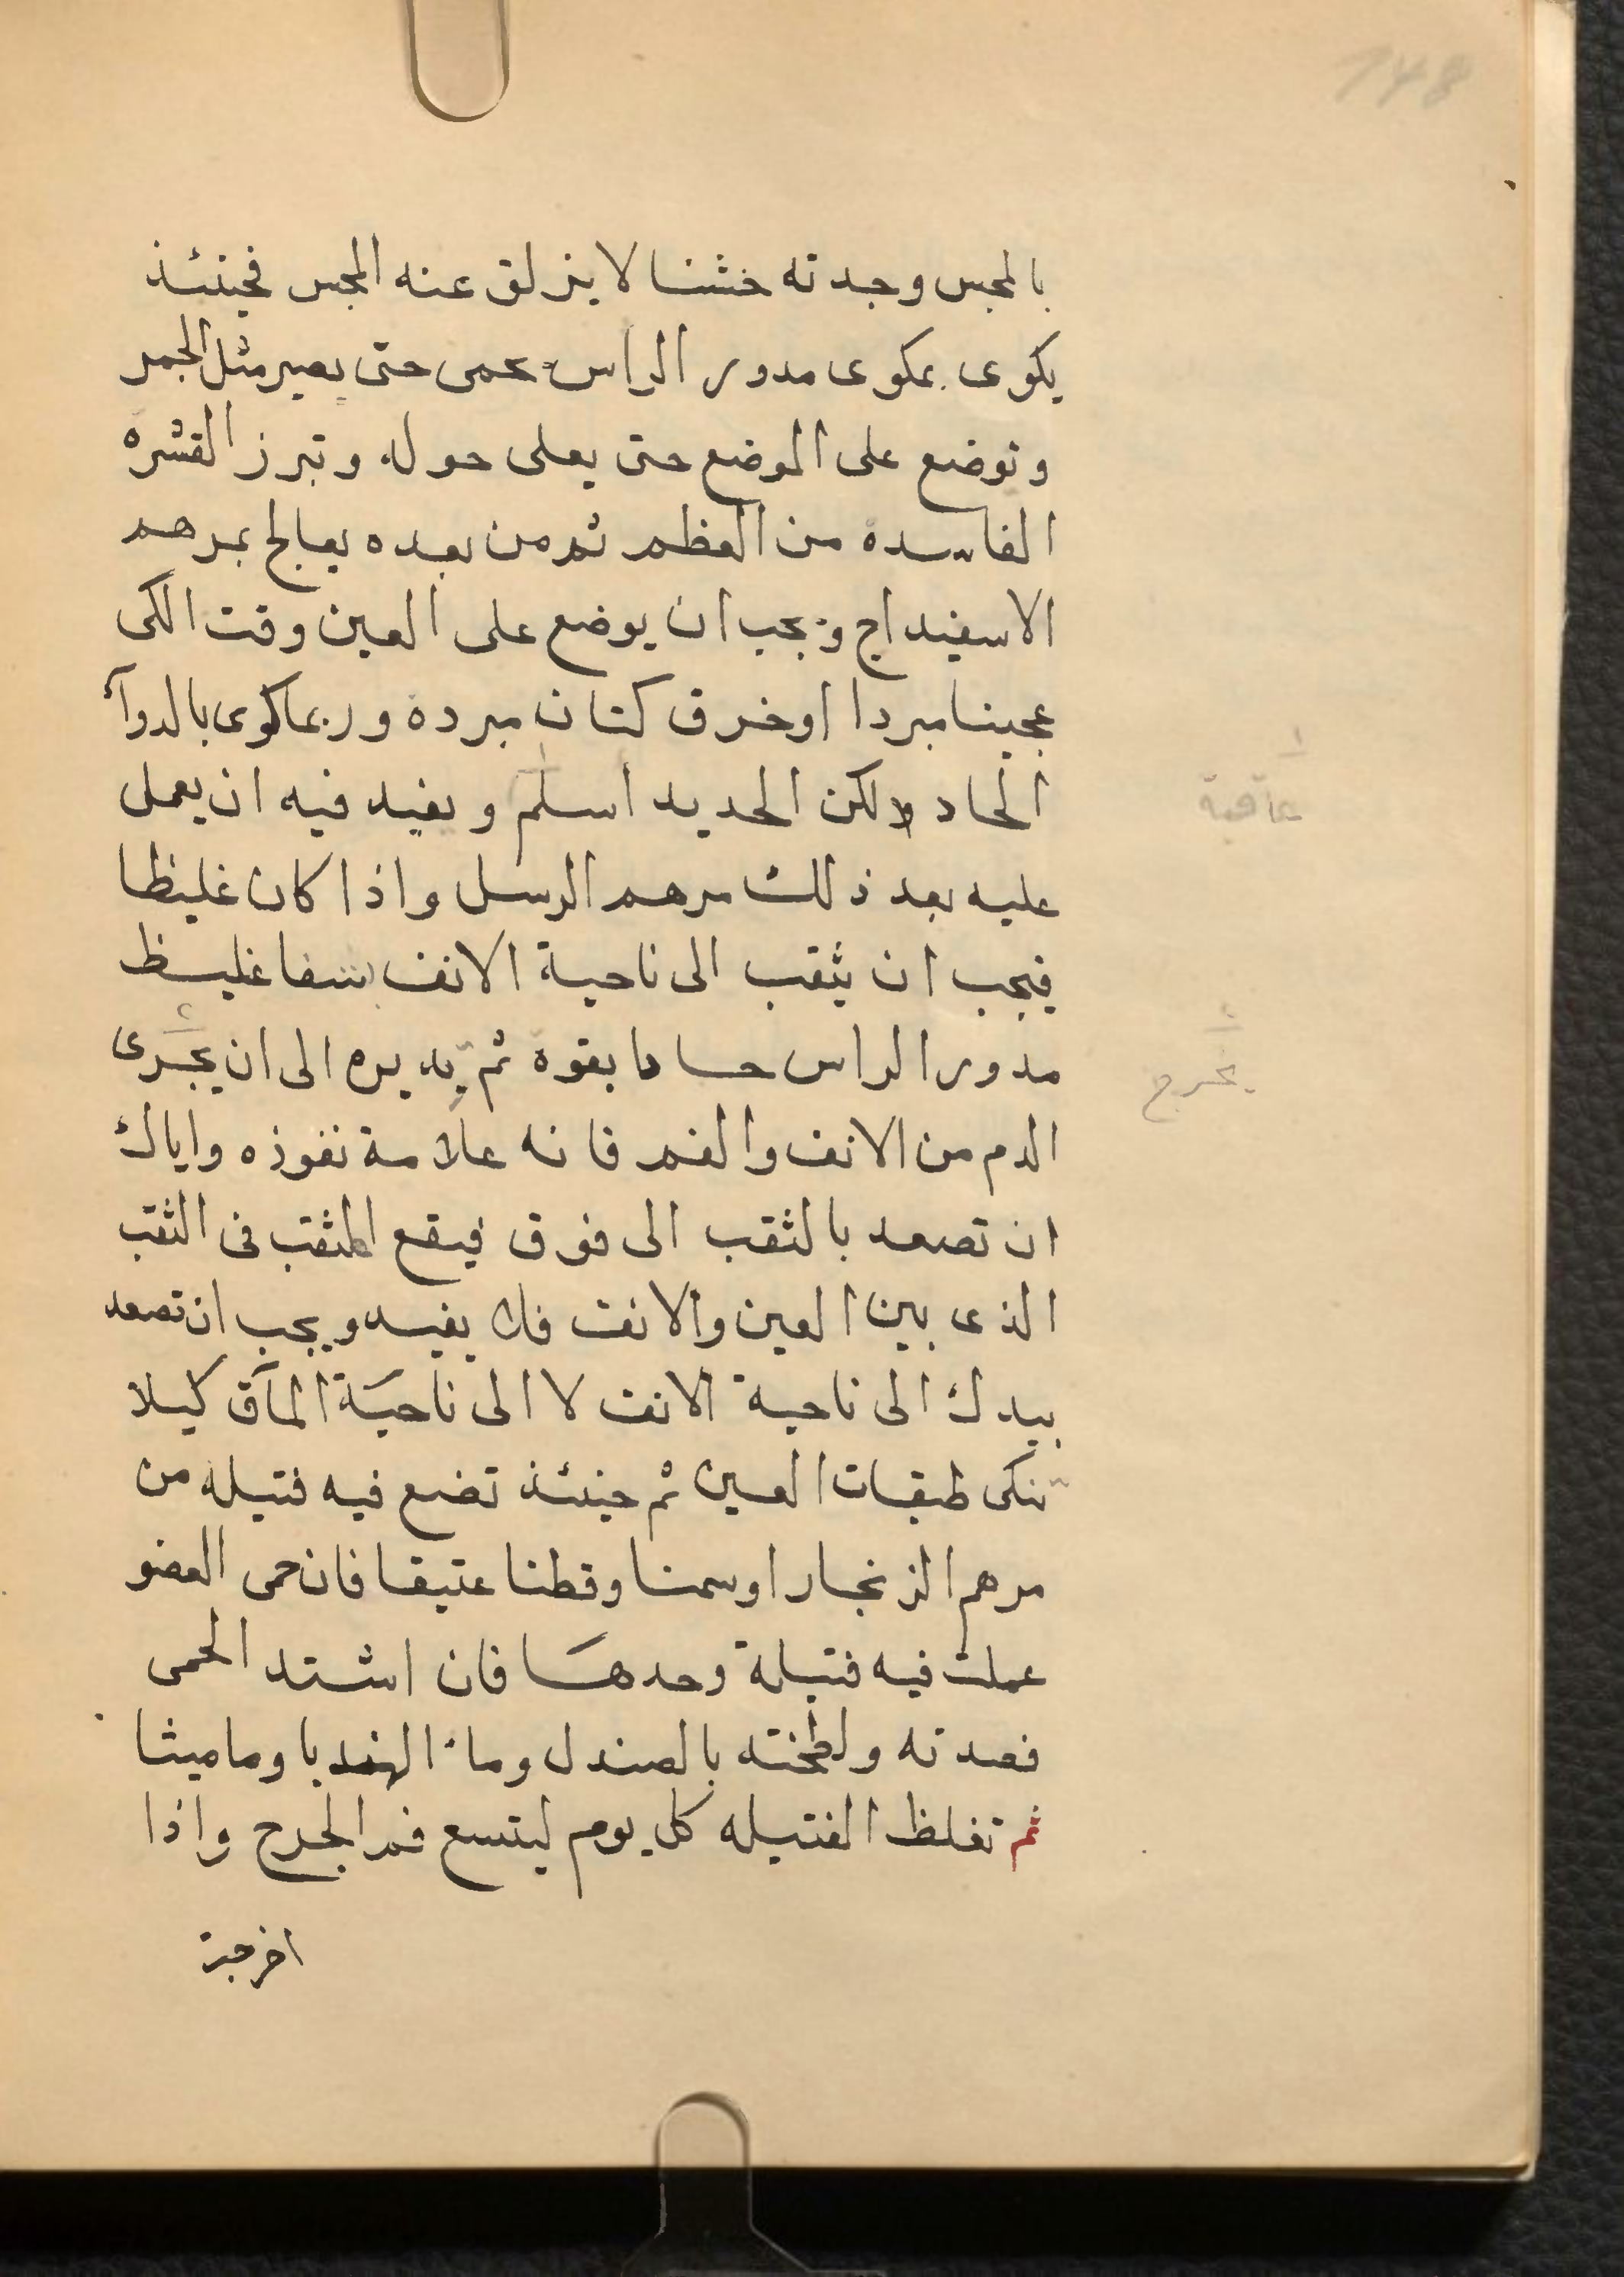 148
بالمجس وجدته خشنا لا ينزلق عنه المجس فحينئذ
يكوى بمكوى مدور الراس يحمى حتى يصير مثل الجمر
وتوضع على الموضع حتى يعلى حوله وتبرز القشرة
الفاسدة من العظم ثم من بعده يعالج بمرهم
الاسفيداج ويجب ان يوضع على العين وقت الكى
عجينا مبردا او خرق كتان مبردة وربما كوى بالدوآء
الحاد ولكن الحديد اسلم ويفيد فيه ان يعمل
عاقبة
عليه بعد ذلك مرهم الرسل واذا كان غليظا
فيجب ان يثقب الى ناحية الانف غليظ
مدور الراس بقوة ثم يديره الى ان يجرى
يخرج
الدم من الانف والفم فانه علامة نفوذه واياك
ان تصعد بالثقب الى فوق فيقع المثقب فى الثقب
الذى بين العين والانف فلا يفيد ويجب ان تصعد
بيدك الى ناحية الانف لا الى ناحية المآق كيلا
تنكى طبقات العين ثم حينئذ تضع فيه فتيله من
مرهم الزنجار او سمنا وقطنا عتيقا فان حمى العضو
عملت فيه فتيلة وحدها فان اشتد الحمى
فصدته ولطخته بالصندل وماء الهندبا وماميثا
ثم تغلظ الفتيله كل يوم ليتسع فم الجرح واذا
اخرجت